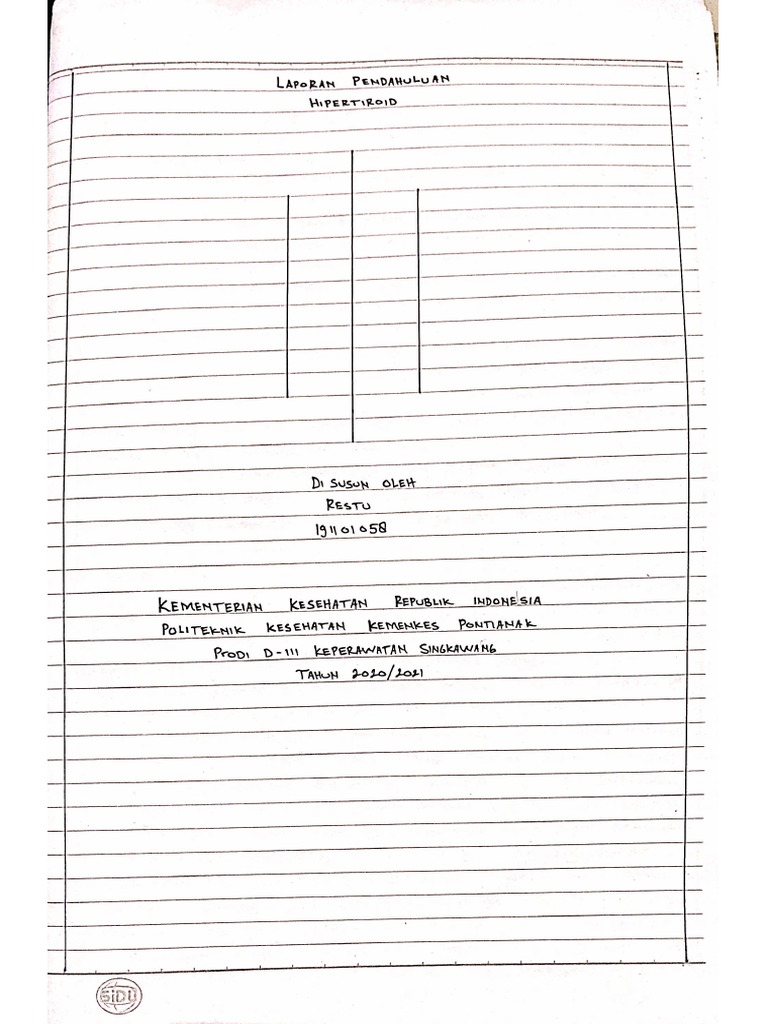 LAPORAN PENDAHULUAN
HIPERTIROID
DI SUSUN OLEH
RESTU
191101058
KEMENTERIAN KESEHATAN REPUBLIK INDONESIA
POLITEKNIK KESEHATAN KEMENKES PONTIANAK
PRODI D-III KEPERAWATAN SINGKAWANG
TAHUN 2020/2021
SiDU